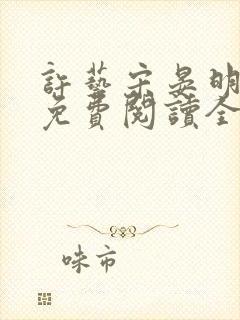 許藝宋晏明
免費閱讀全
味市